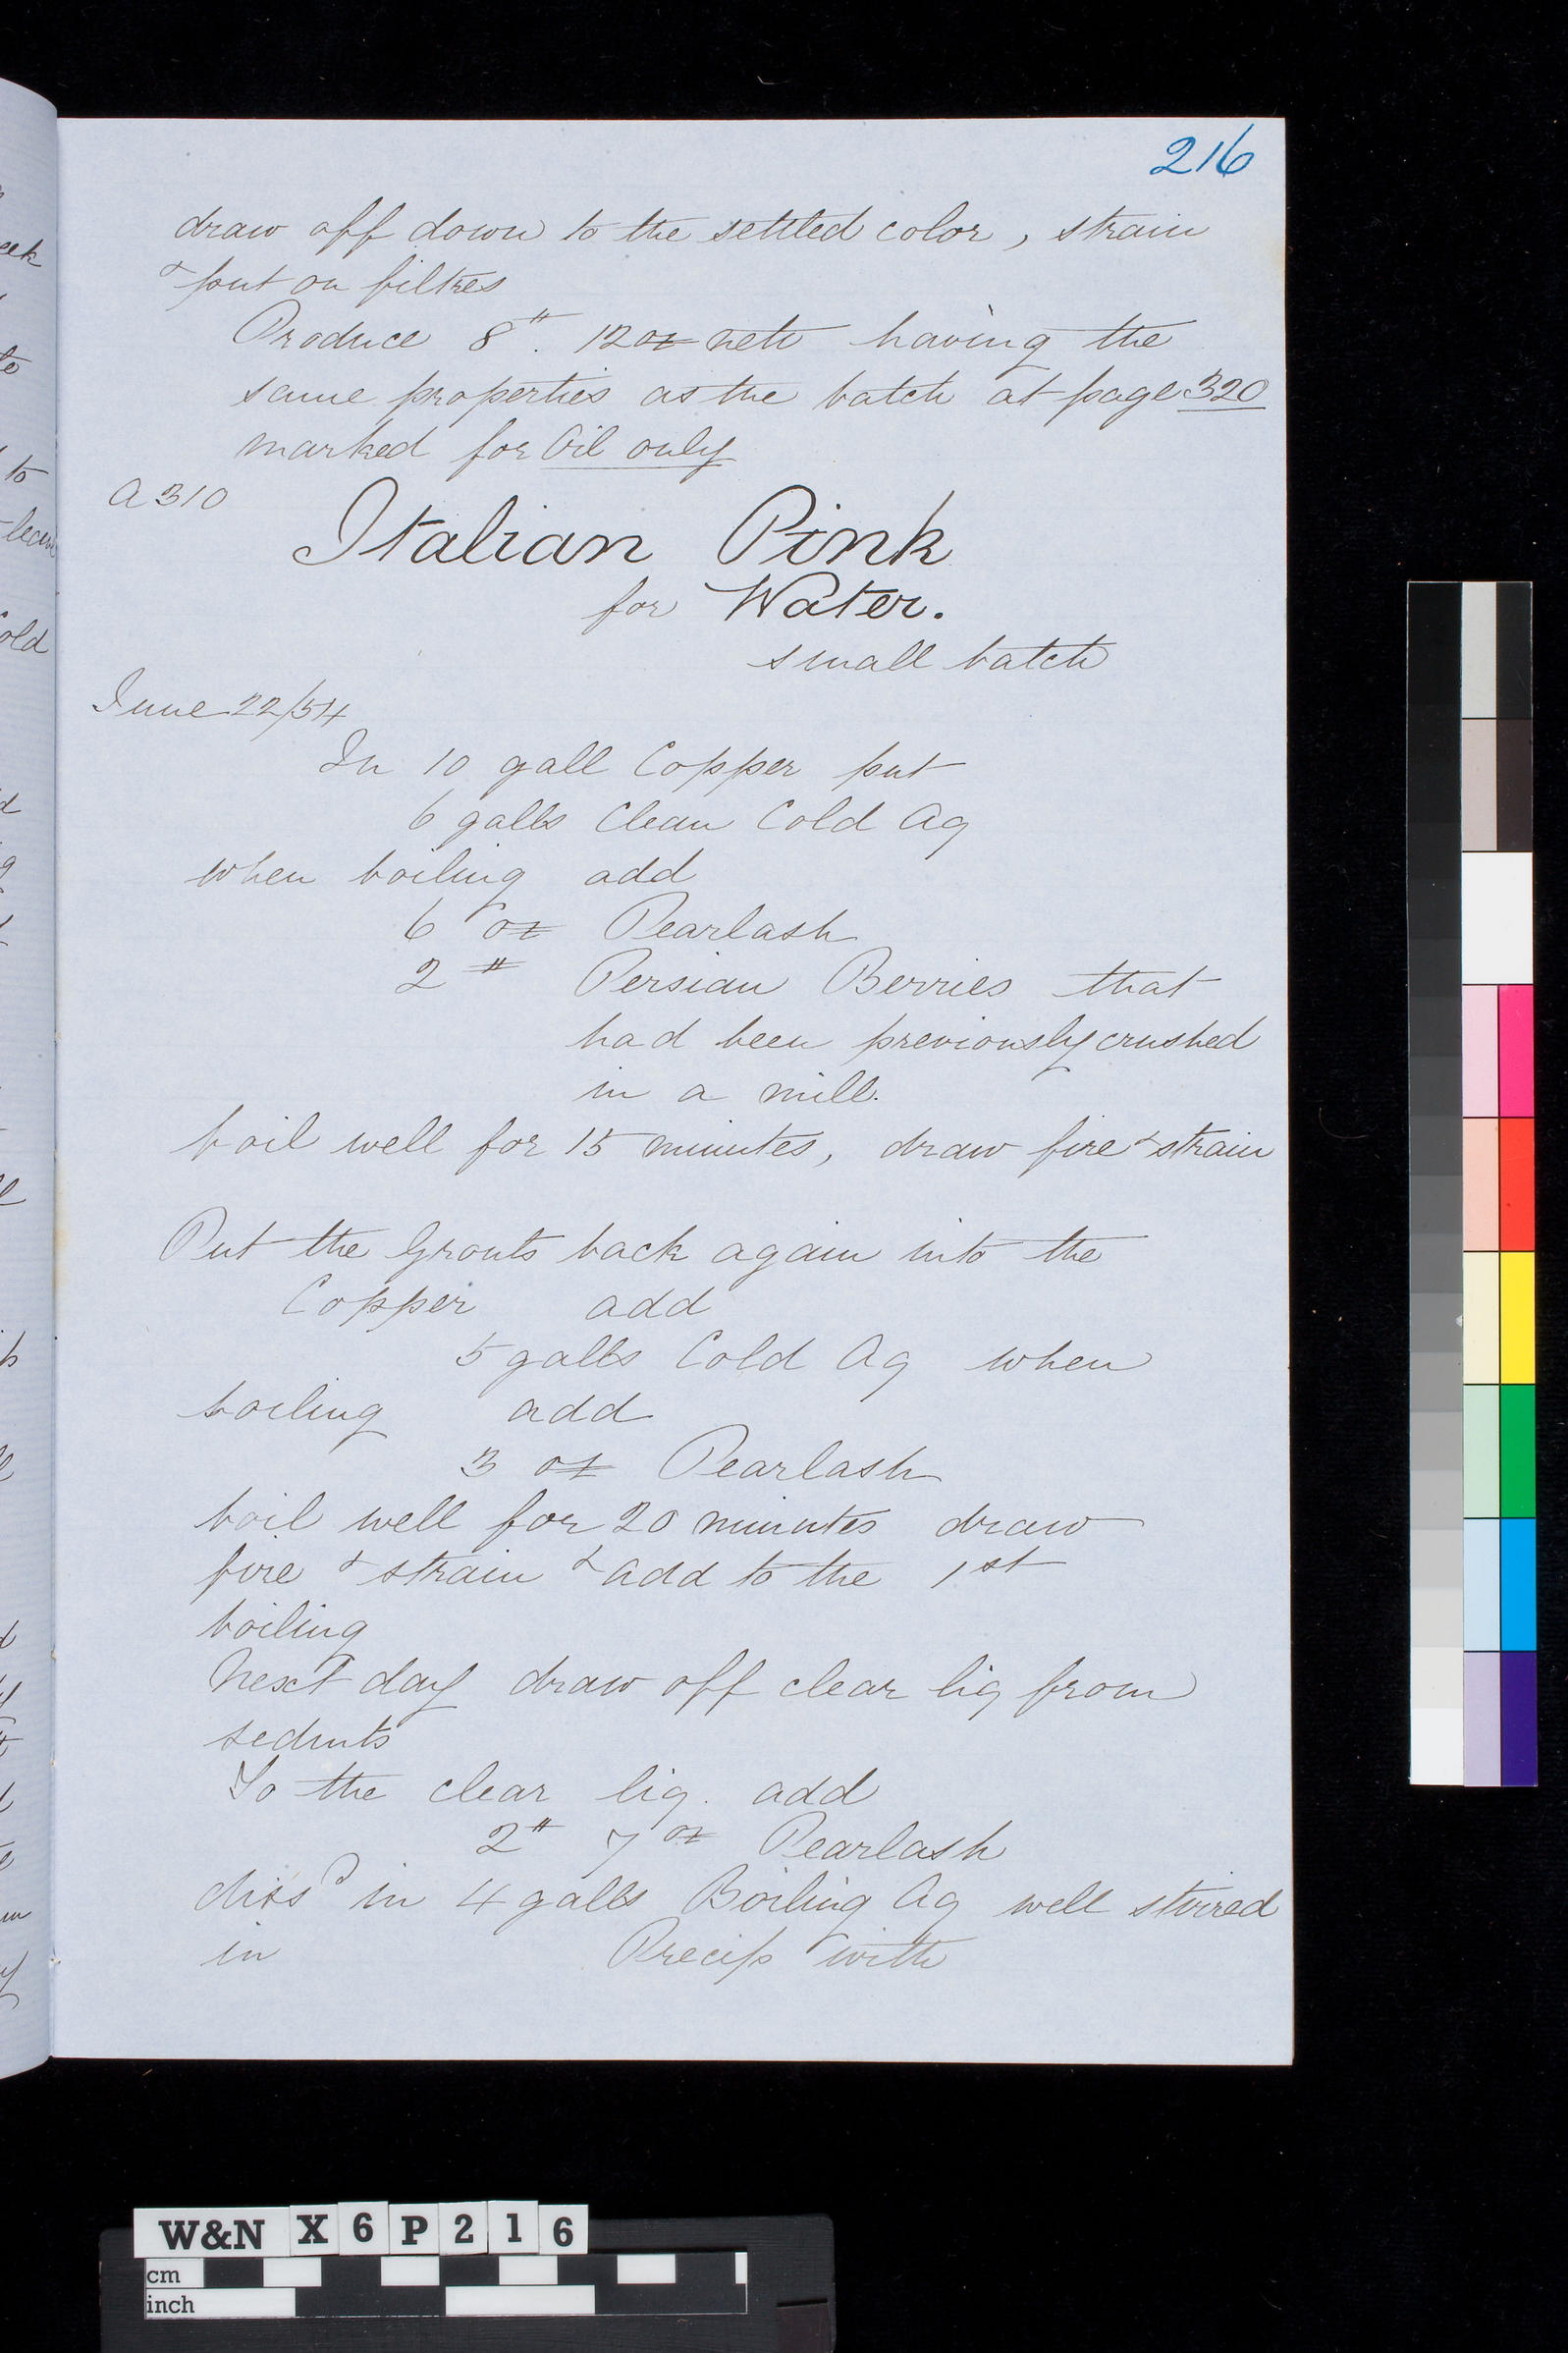 216
draw off down to the settled color, strain
& put on filtres
Produce 8# . 12oz nett having the
same properties as the batch at page 320
marked for Oil only
A 310
Italian Pink
for Water.
small batch
June 22/54
In 10 gall Copper put
6 galls Clean Cold Aq
when boiling add
6 oz Pearlash
2 # Persian Berries that
had been previously crushed
in a mill.
boil well for 15 minutes, draw fire & strain
Put the Grouts back again into the
Copper add
5 galls Cold Aq when
boiling add
3 oz Pearlash
boil well for 20 minutes draw
fire & strain & add to the 1st
boiling
Next day draw off clear liq from
sedmts
To the clear liq. add
2# 7 oz Pearlash
dissd in 4 galls Boiling Aq well stirred
in Precip with
W&N X 6 P 2 1 6
cm
inch